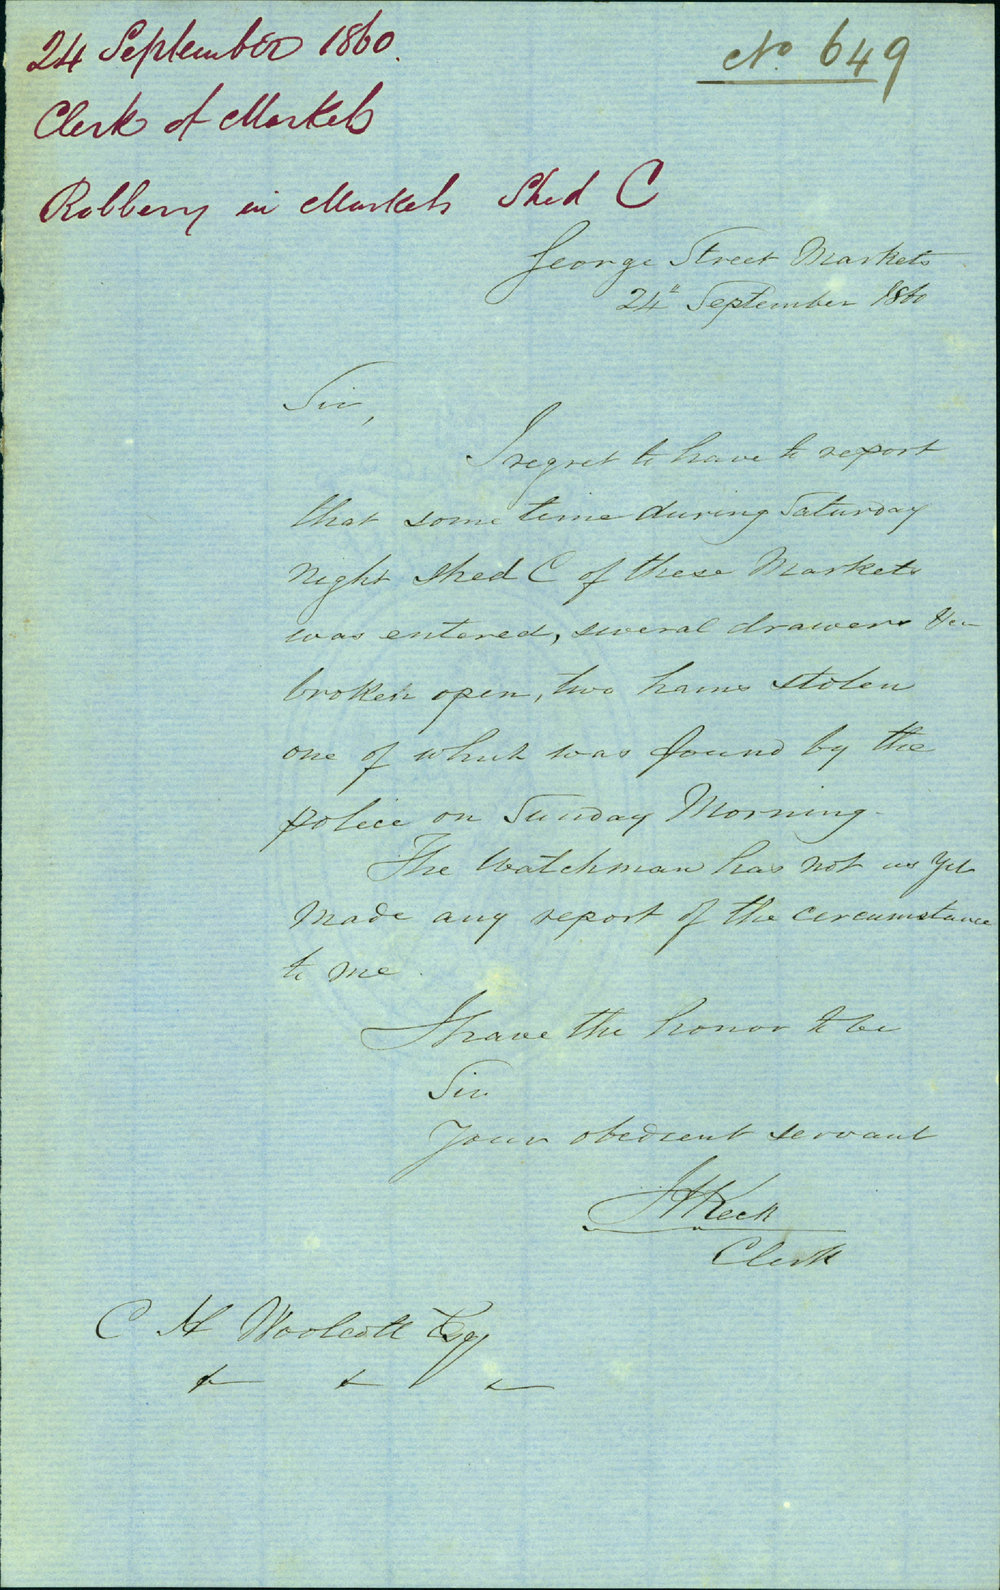 24 September 1860.
No. 649
Clerk of Markets
Robbery in Markets Shed C
George Street Markets
24" September 1860
Sir,
I regret to have to report
that some time during Saturday
night shed C of these Markets
was entered, several drawers &c
broken open, two hams stolen
one of which was found by the
police on Sunday Morning.
The Watchman has not as yet
made any report of the circumstance
to me.
I have the honor to be
Sir
Your obedient servant
Clerk
C H Woolcott Esq